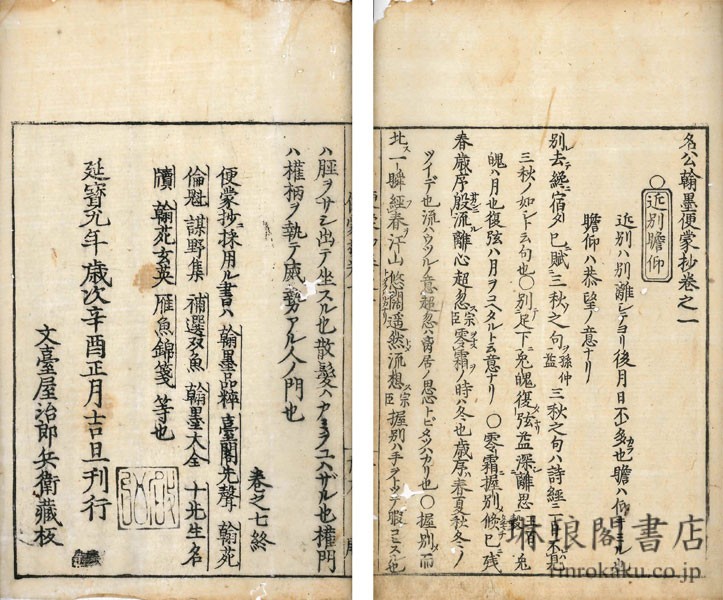 名公翰墨便蒙抄卷之一
近別瞻仰
近別ハ別離シテヨリ後月日不多也瞻ハ仰
瞻仰ハ恭望ノ意ナリ
別去經宿夕已賦三秋之句孫仲益 三秋之句ハ詩經
三秋ノ如シト云句也〇別足下兎魄復弦益深離思 兎
魄ハ月也復弦ハ月ヲコヘタルト云意ナリ 〇零霜握別倐已残
春歳序殷流離心超忽宗臣 零霜ノ時ハ冬也歳序ハ春夏秋冬ノ
ツイデ也流ハウツル意超忽ハ 〇握別而
北一瞬經春汗山悠濶遥然流想宗臣 握別ハ手ヲトツテ
ハ脛ヲサシ出テ坐スル也散髪ハカミヲユハザル也權門
ハ權柄ヲ執テ威勢アル人ノ門也
卷之七終
便蒙抄採用ル書ハ 翰墨品粹 臺閣先聲 翰苑
倫魁 謀野集 補選双魚 翰墨大全 十先生名
牘 翰苑玄英 雁魚錦箋 等也
延寶九年歳次辛酉正月吉旦刊行
文臺屋治郎兵衛藏板
琳琅閣書店
rinrokaku.co.jp